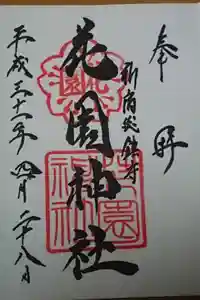 奉拝
新宿総鎮守
花園神社
平成三十一年四月二十八日
花園神社